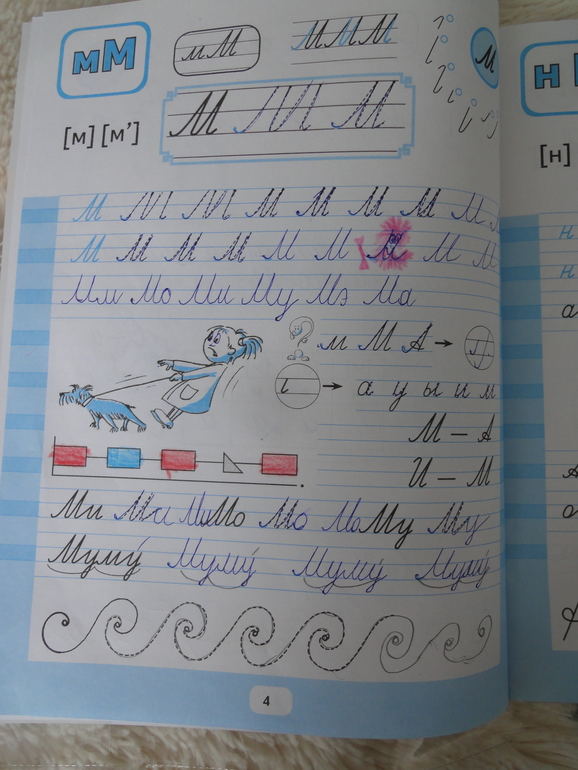 мМ
мМ
ММММ
м
[м] [м’]
М М М
М М М М М М М М
М М М М М М М М М
Мм Мо Ми Му Мэ Ма
м М А →
→ а у ы и м
М – А
И – М
Ми Ми Ми Мо Мо Мо Му Му
Муму́ Муму́ Муму́ Муму́
4
н
[н]
н
н
а